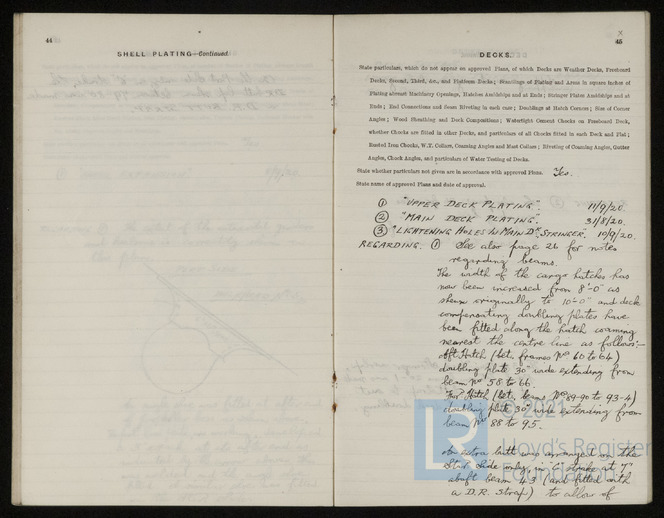 44
SHELL PLATING—Continued.
45
DECKS.
State particulars, which do not appear on approved Plans, of which Decks are Weather Decks, Freeboard
Decks, Second, Third, &c., and Platform Decks; Scantlings of Plating and Areas in square inches of
Plating abreast Machinery Openings, Hatches Amidships and at Ends; Stringer Plates Amidships and at
Ends; End Connections and Seam Riveting in each case; Doublings at Hatch Corners; Size of Corner
Angles; Wood Sheathing and Deck Compositions; Watertight Cement Chocks on Freeboard Deck,
whether Chocks are fitted in other Decks, and particulars of all Chocks fitted in each Deck and Flat;
Rusted Iron Chocks, W.T. Collars, Coaming Angles and Mast Collars; Riveting of Coaming Angles, Gutter
Angles, Chock Angles, and particulars of Water Testing of Decks.
State whether particulars not given are in accordance with approved Plans. Yes.
State name of approved Plans and date of approval.
① "UPPER DECK PLATING". 11/9/20.
② "MAIN DECK PLATING". 31/8/20.
③ "LIGHTENING HOLES IN MAIN Dk STRINGER. 10/9/20.
REGARDING. ① See also page 26 for notes
regarding beams.
The width of the cargo hatches has
now been increased from 8'-0" as
shewn originally to 10'-0" and deck
compensating doubling plates have
been fitted along the hatch coaming
nearest the centre line as follows:-
Aft Hatch (bet. frames Nos 60 to 64)
doubling plate 30" wide extending from
beam No 58 to 66.
For'd Hatch (bet. beams Nos 89-90 to 93-4)
doubling plate 30" wide extending from
beam No 88 to 95.
An extra butt was arranged on the
Star. side only, in "C" strake at 7"
abaft beam 43 (and fitted with
a D.R. strap) to allow of
© 2021
LR
Lloyd's Register
Foundation